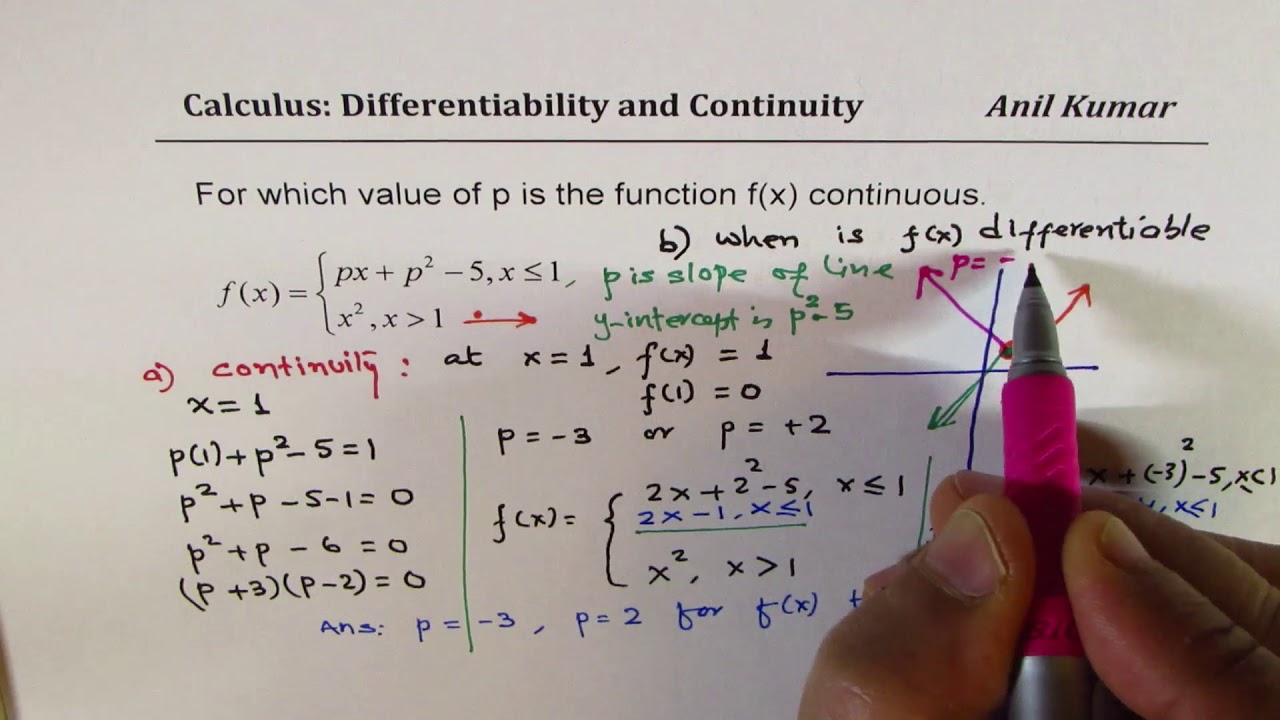 Calculus: Differentiability and Continuity Anil Kumar
For which value of p is the function f(x) continuous.
b) when is f(x) differentiable
f(x) = { px + p² − 5, x ≤ 1, p is slope of line
x², x > 1 y-intercept is p² - 5
p = -
a) continuity: at x = 1, f(x) = 1
x = 1
f(1) = 0
p(1) + p² - 5 = 1
p² + p - 5 - 1 = 0
p² + p - 6 = 0
(p + 3)(p - 2) = 0
p = -3 or p = +2
f(x) = { 2x + 2² - 5, x ≤ 1
2x - 1, x ≤ 1
x², x > 1
x + (-3)² - 5, x ≤ 1
, x ≤ 1
Ans: p = -3, p = 2 for f(x)